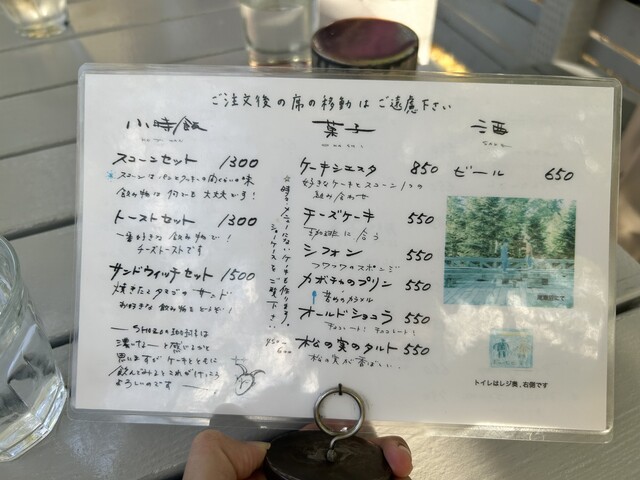 ご注文後の席の移動はご遠慮下さい
小時飯
スコーンセット 1300
スコーンはパンとクッキーの間ぐらいの味
飲み物は何でも大丈夫です!
トーストセット 1300
一番好きな飲み物で!
チーズトーストです
サンドウィッチセット 1500
焼きたてタマゴのサンド
お好きな飲み物とどうぞ!
思いますが ケーキとともに
飲んでみると これが けっこう
よろしいのです
菓子
ケーキシエスタ 850
好きなケーキとスコーン1つの
組み合わせ
チーズケーキ 550
珈琲に合う
シフォン 550
フワフワのスポンジ
カボチャのプリン 550
オールドショコラ 550
チョコレート! チョコレート!
松の実のタルト 550
松の実が香ばしい
ショーケースをご覧下さい
450~
600
酒
ビール 650
トイレはレジ奥、右側です